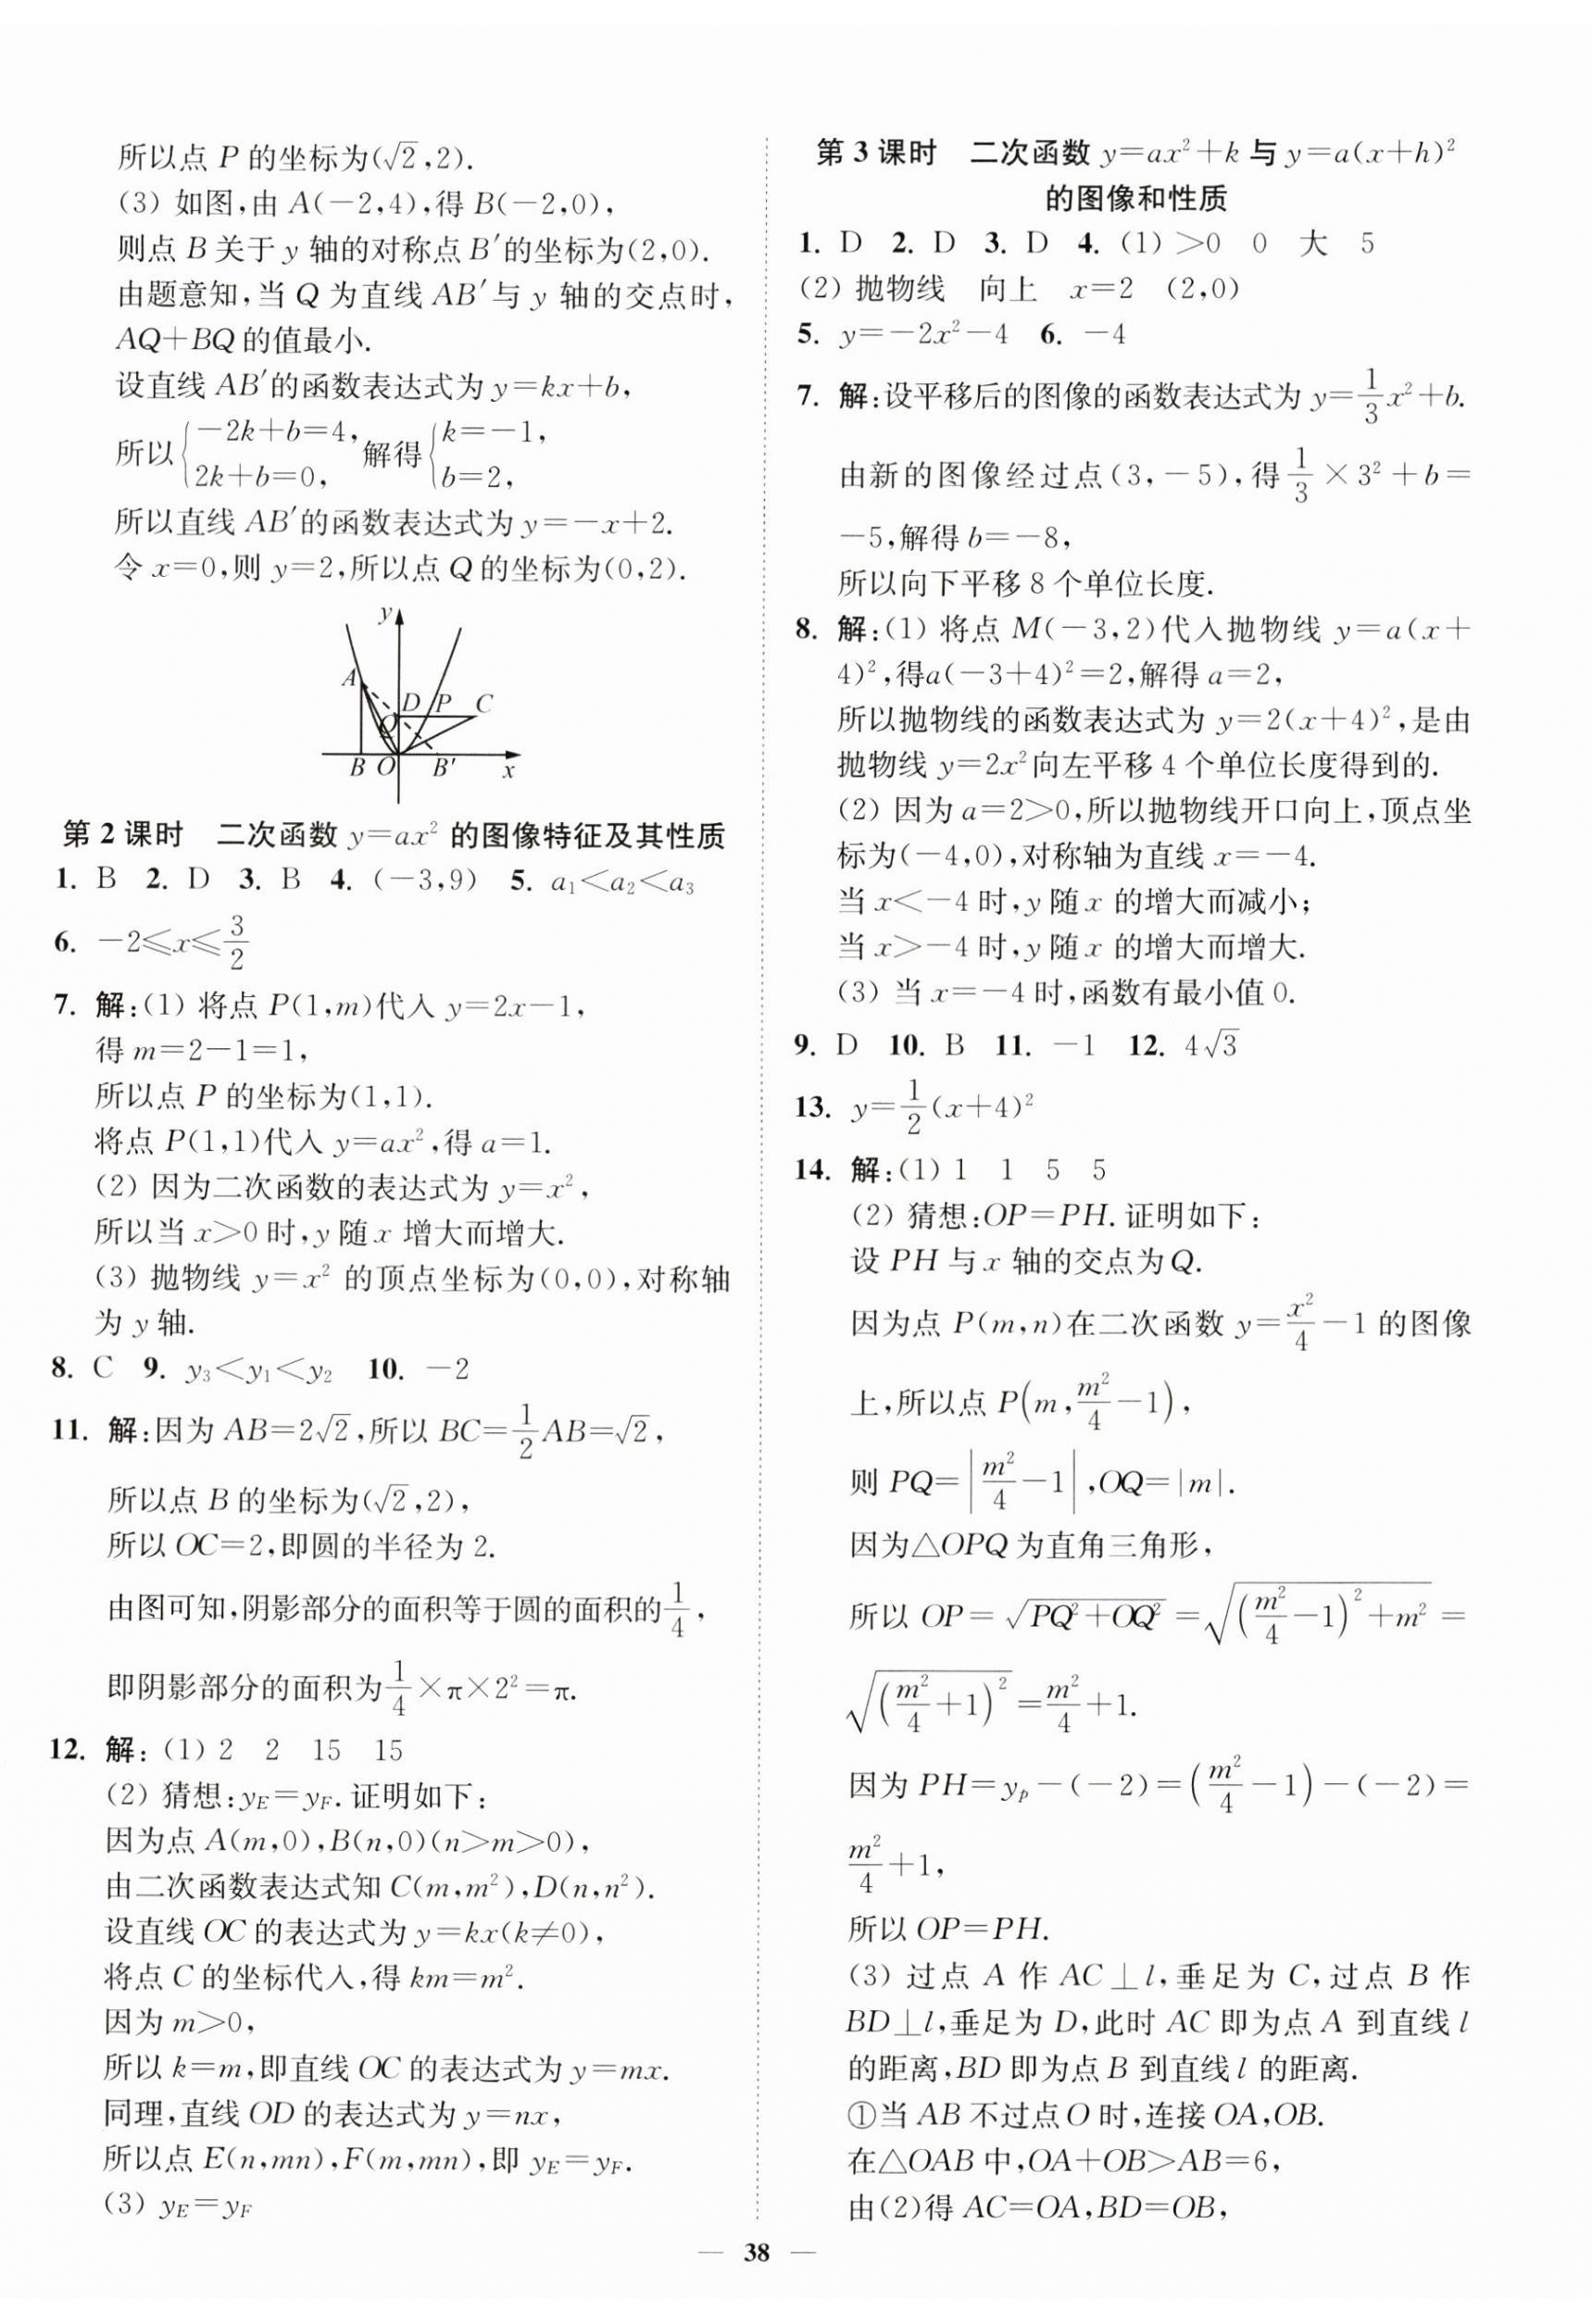 所以点 P 的坐标为(√2,2).
(3) 如图,由 A(-2,4),得 B(-2,0),
则点 B 关于 y 轴的对称点 B′的坐标为(2,0).
由题意知,当 Q 为直线 AB′与 y 轴的交点时,
AQ+BQ 的值最小.
设直线 AB′的函数表达式为 y=kx+b,
所以{-2k+b=4, 2k+b=0, 解得{k=-1, b=2,
所以直线 AB′的函数表达式为 y=-x+2.
令 x=0,则 y=2,所以点 Q 的坐标为(0,2).
y
A
D P C
Q
B O B′ x
第 2 课时 二次函数 y=ax² 的图像特征及其性质
1. B 2. D 3. B 4. (-3,9) 5. a₁<a₂<a₃
6. -2≤x≤3/2
7. 解:(1) 将点 P(1,m)代入 y=2x-1,
得 m=2-1=1,
所以点 P 的坐标为(1,1).
将点 P(1,1)代入 y=ax²,得 a=1.
(2) 因为二次函数的表达式为 y=x²,
所以当 x>0 时,y 随 x 增大而增大.
(3) 抛物线 y=x² 的顶点坐标为(0,0),对称轴
为 y 轴.
8. C 9. y₃<y₁<y₂ 10. -2
11. 解:因为 AB=2√2,所以 BC=1/2 AB=√2,
所以点 B 的坐标为(√2,2),
所以 OC=2,即圆的半径为 2.
由图可知,阴影部分的面积等于圆的面积的1/4,
即阴影部分的面积为1/4×π×2²=π.
12. 解:(1) 2 2 15 15
(2) 猜想:y_E=y_F.证明如下:
因为点 A(m,0),B(n,0)(n>m>0),
由二次函数表达式知 C(m,m²),D(n,n²).
设直线 OC 的表达式为 y=kx(k≠0),
将点 C 的坐标代入,得 km=m².
因为 m>0,
所以 k=m,即直线 OC 的表达式为 y=mx.
同理,直线 OD 的表达式为 y=nx,
所以点 E(n,mn),F(m,mn),即 y_E=y_F.
(3) y_E=y_F
第 3 课时 二次函数 y=ax²+k 与 y=a(x+h)²
的图像和性质
1. D 2. D 3. D 4. (1) >0 0 大 5
(2) 抛物线 向上 x=2 (2,0)
5. y=-2x²-4 6. -4
7. 解:设平移后的图像的函数表达式为 y=1/3 x²+b.
由新的图像经过点(3,-5),得 1/3×3²+b=
-5,解得 b=-8,
所以向下平移 8 个单位长度.
8. 解:(1) 将点 M(-3,2)代入抛物线 y=a(x+
4)²,得a(-3+4)²=2,解得 a=2,
所以抛物线的函数表达式为 y=2(x+4)²,是由
抛物线 y=2x²向左平移 4 个单位长度得到的.
(2) 因为 a=2>0,所以抛物线开口向上,顶点坐
标为(-4,0),对称轴为直线 x=-4.
当 x<-4 时,y 随 x 的增大而减小;
当 x>-4 时,y 随 x 的增大而增大.
(3) 当 x=-4 时,函数有最小值 0.
9. D 10. B 11. -1 12. 4√3
13. y=1/2(x+4)²
14. 解:(1) 1 1 5 5
(2) 猜想:OP=PH.证明如下:
设 PH 与 x 轴的交点为 Q.
因为点 P(m,n)在二次函数 y=x²/4-1 的图像
上,所以点 P(m,m²/4-1),
则 PQ=|m²/4-1|,OQ=|m|.
因为△OPQ 为直角三角形,
所以 OP=√(PQ²+OQ²)=√((m²/4-1)²+m²)=
√((m²/4+1)²)=m²/4+1.
因为 PH=y_p-(-2)=(m²/4-1)-(-2)=
m²/4+1,
所以 OP=PH.
(3) 过点 A 作 AC⊥l,垂足为 C,过点 B 作
BD⊥l,垂足为 D,此时 AC 即为点 A 到直线 l
的距离,BD 即为点 B 到直线 l 的距离.
①当 AB 不过点 O 时,连接 OA,OB.
在△OAB 中,OA+OB>AB=6,
由(2)得 AC=OA,BD=OB,
— 38 —